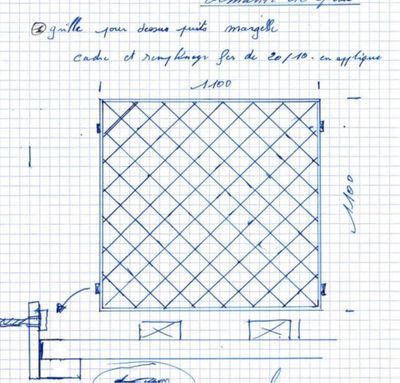 ③ grille pour dessus puits margelle
cadre et remplissage fer de 20/10. en applique
1100
1100